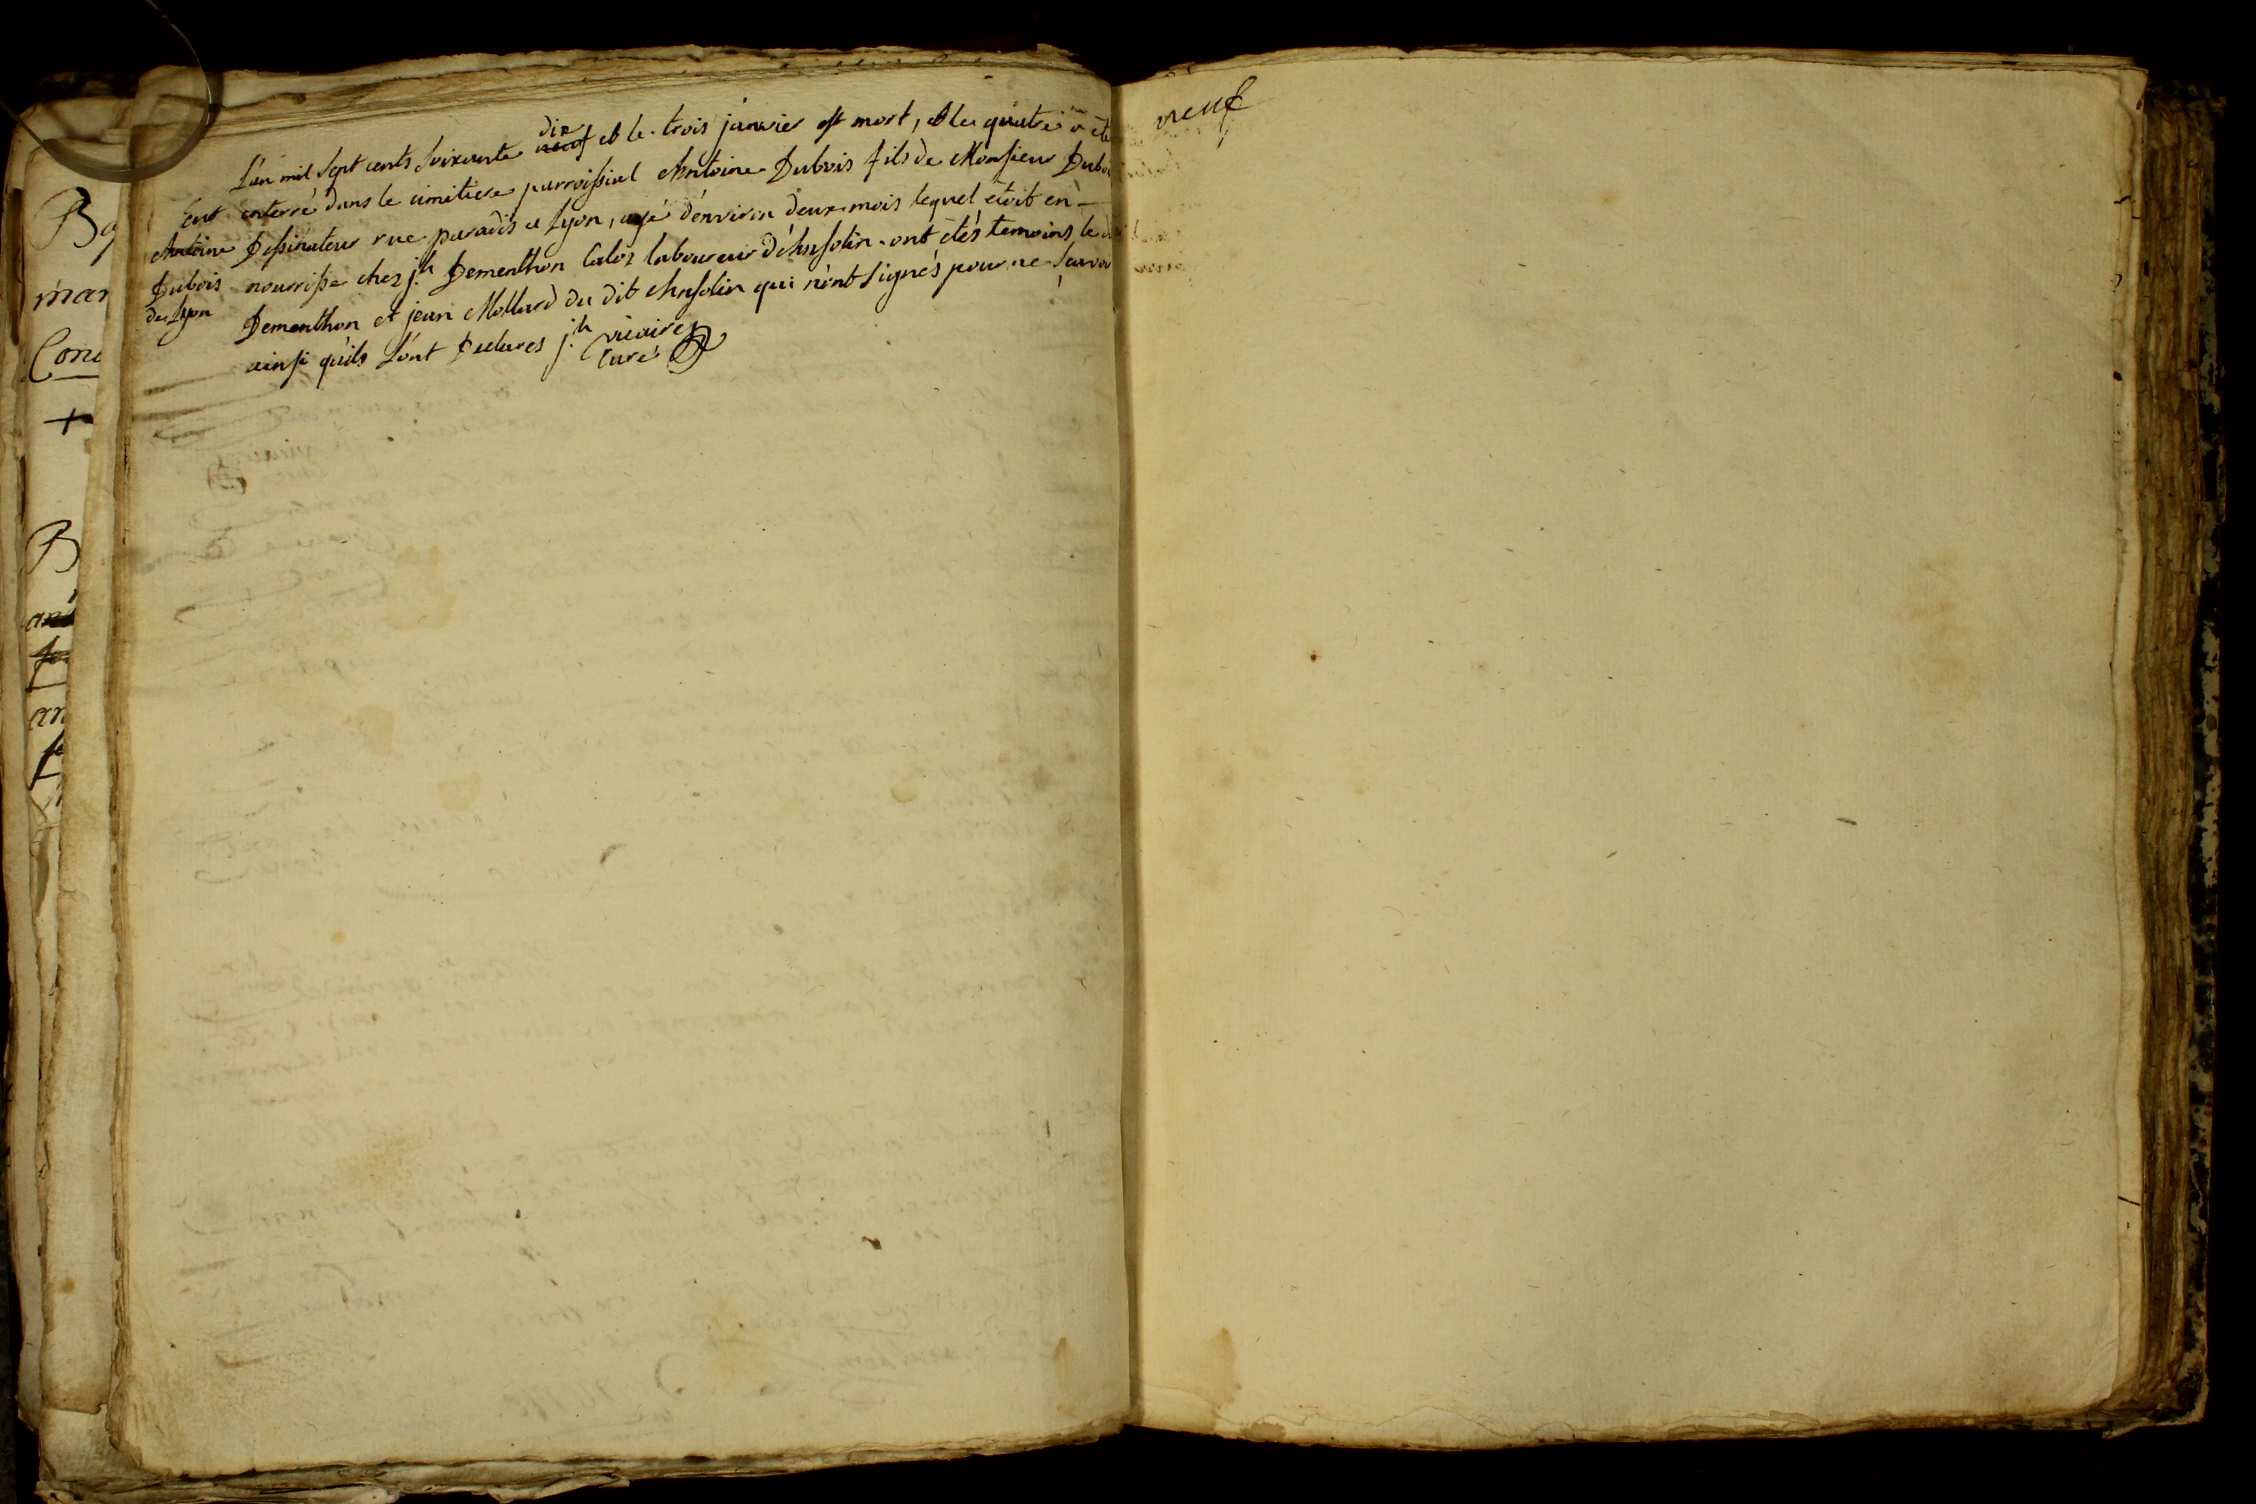 L'an mil sept cents soixante dix neuf et le trois janvier est mort, et le quatre a ete
Ent enterré dans le cimitiere parroissial Antoine Dubois fils de Monsieur Dubois
Antoine Dessinateur rue paradis a Lyon, agé d'environ deux mois lequel etoit en-
Dubois nourrisse chez jh Dementhon Calos laboureur d'Ansolin ont étés temoins le dit
de Lyon Dementhon et jean Mollard du dit Ansolin qui n'ont signés pour ne scavoir
ainsi qu'ils l'ont Declares jh vicaire
Curé
neuf
Ba
mar
Con
+
B
an